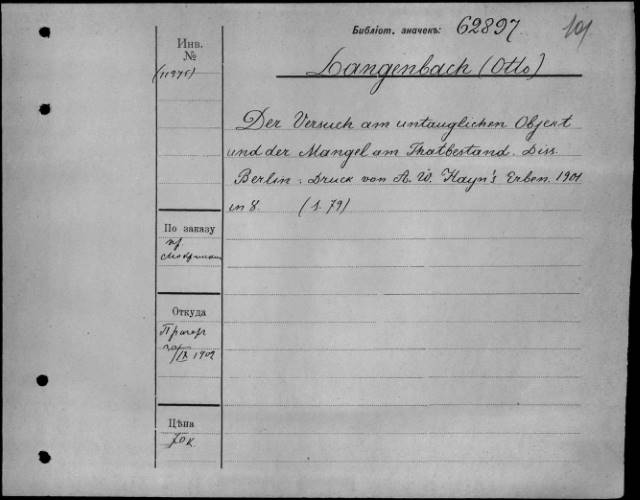 Библіот. значекъ: 62897
Инв.
№
(11975)
Langenbach (Otto)
Der Versuch am untauglichen Objekt
und der Mangel am Thatbestand. Diss.
Berlin. Druck von A. W. Hayn's Erben. 1901
in 8. (S. 79)
По заказу
пр.
Откуда
Прагер
20/IX 1902
Цѣна
70 к